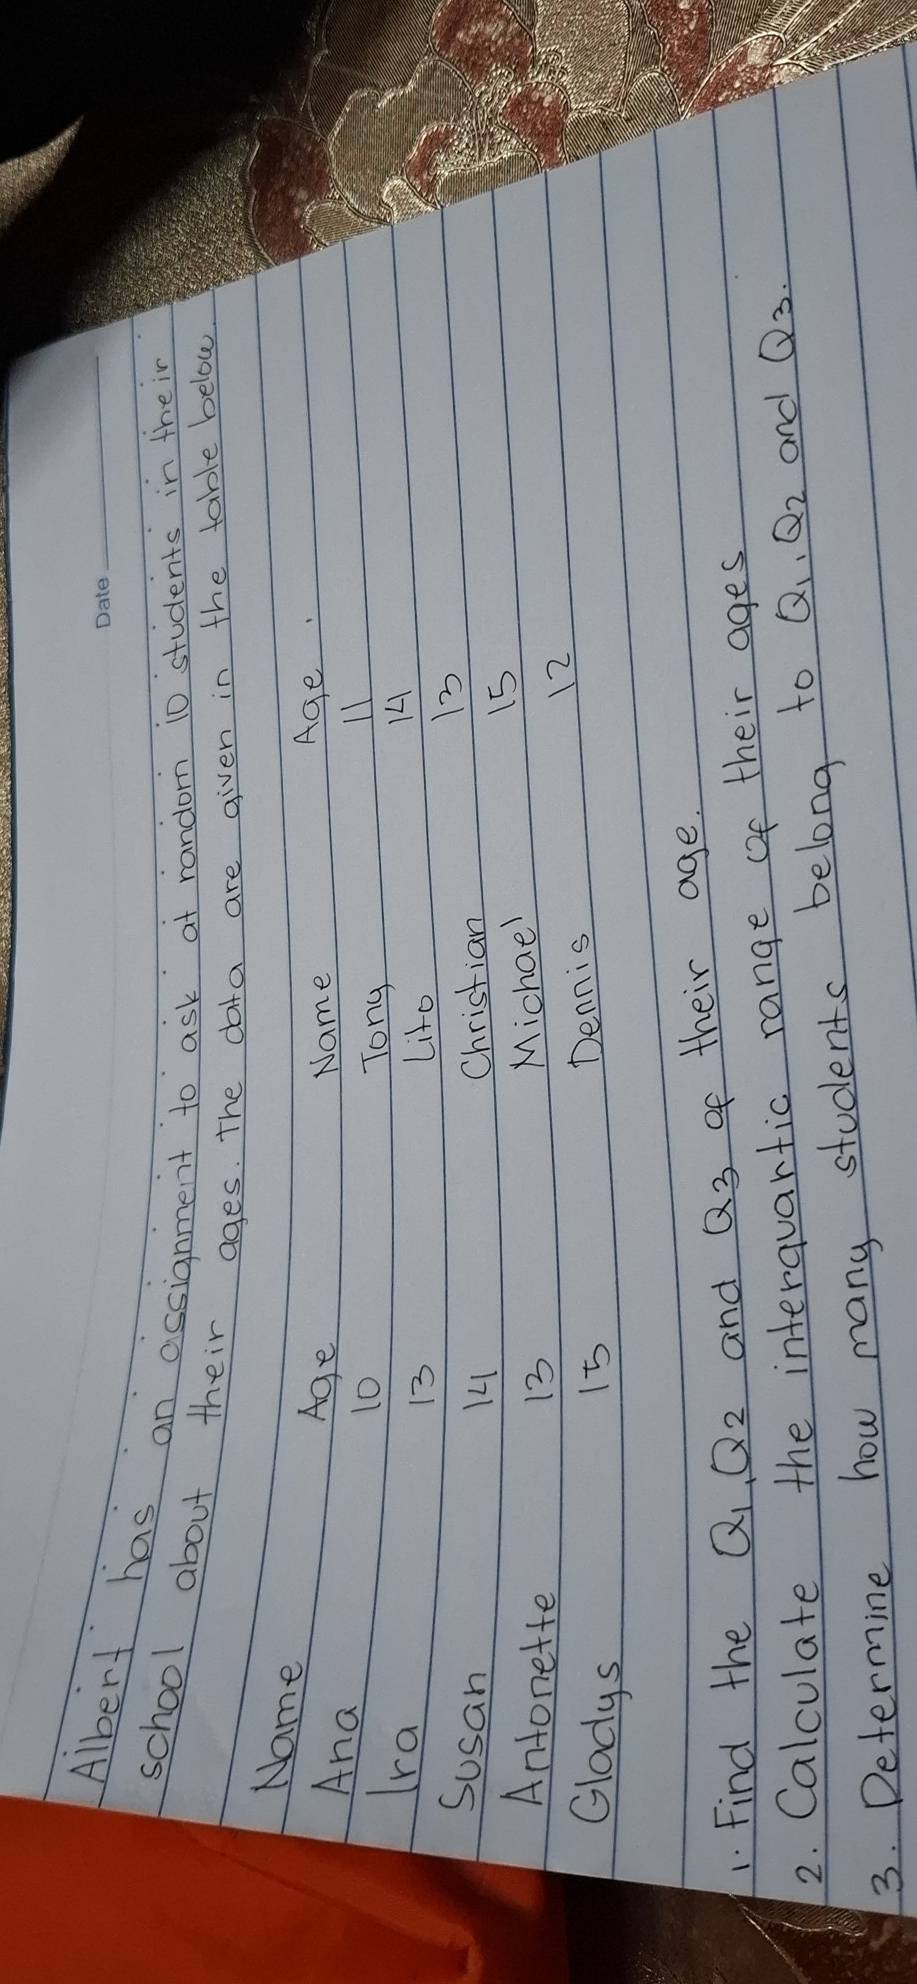 Date
Albert has an assignment to ask at random 10 students in their
school about their ages. The data are given in the table below.
Name Age Name Age.
Ana 10 Tony 11
Ira 13 Lito 14
Susan 14 Christian 13
Antonette 13 Michael 15
Gladys 15 Dennis 12
1. Find the Q1, Q2 and Q3 of their age.
2. Calculate the interquartic range of their ages
3. Determine how many students belong to Q1, Q2 and Q3.